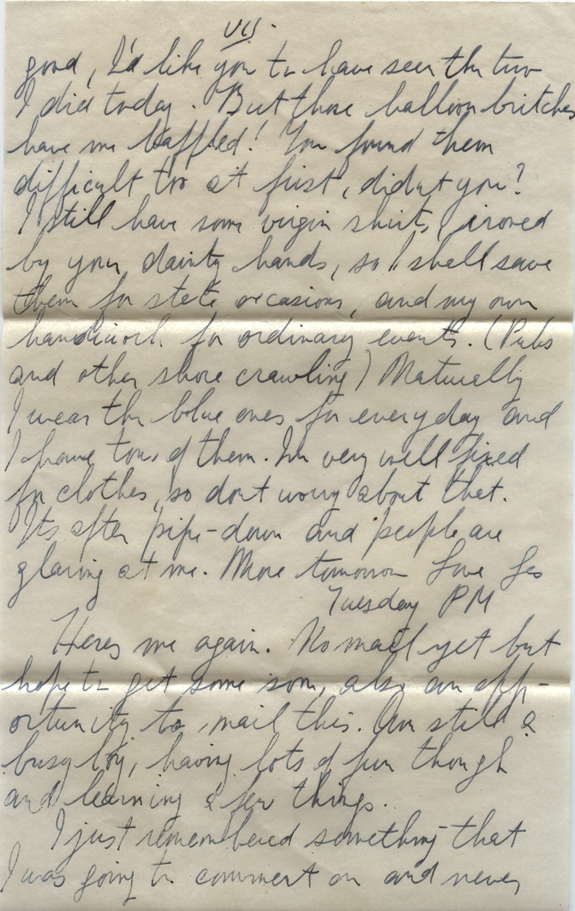 VII.
good, I'd like you to have seen the two
I did today. But those balloon britches
have me baffled! You found them
difficult too at first, didnt you?
I still have some virgin shirts, ironed
by your dainty hands, so I shall save
them for state occasions, and my own
handiwork for ordinary events. (Pubs
and other shore crawling) Naturally
I wear the blue ones for everyday and
I have tons of them. Im very well fixed
for clothes, so dont worry about that.
Its after pipe-down and people are
glaring at me. More tomorrow Love Les
Tuesday PM
Heres me again. No mail yet but
hope to get some soon, also an opp-
ortunity to mail this. Am still a
busy boy, having lots of fun though
and learning a few things.
I just remembered something that
I was going to comment on and never